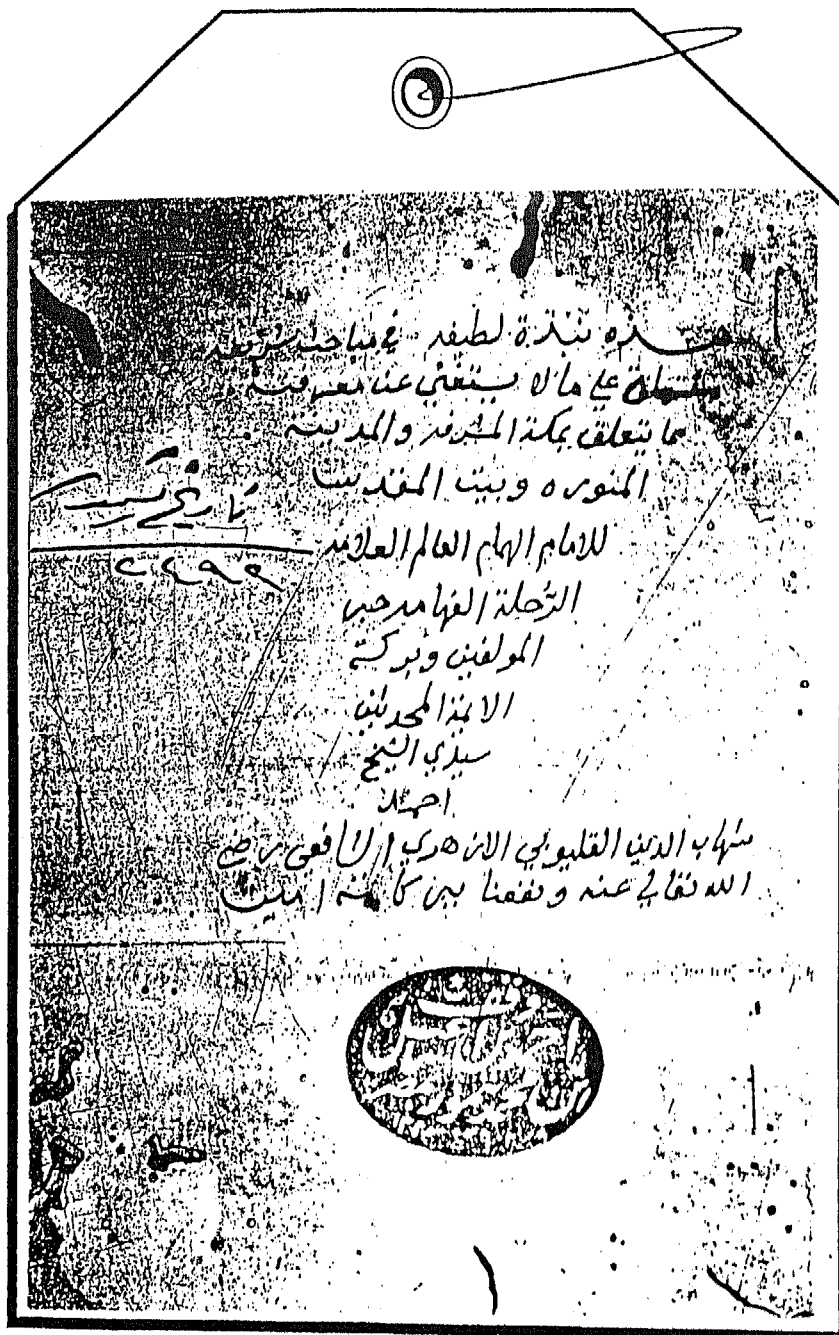 هذه نبذة لطيفه في مباحث شريفه
مشتملة علي ما لا يستغني عن معرفته
مما يتعلق بمكة المشرفه والمدينه
المنوره وبيت المقدس
للامام الهمام العالم العلامه
الرُحلة الفهامه حبر
المولفين وبركة
الائمة المحدثين
سيدي الشيخ
احمد
شهاب الدين القليوبي الازهري الشافعي رضي
الله تعالي عنه ونفعنا ببركاته امين
تاريخ
٢٤٩٩